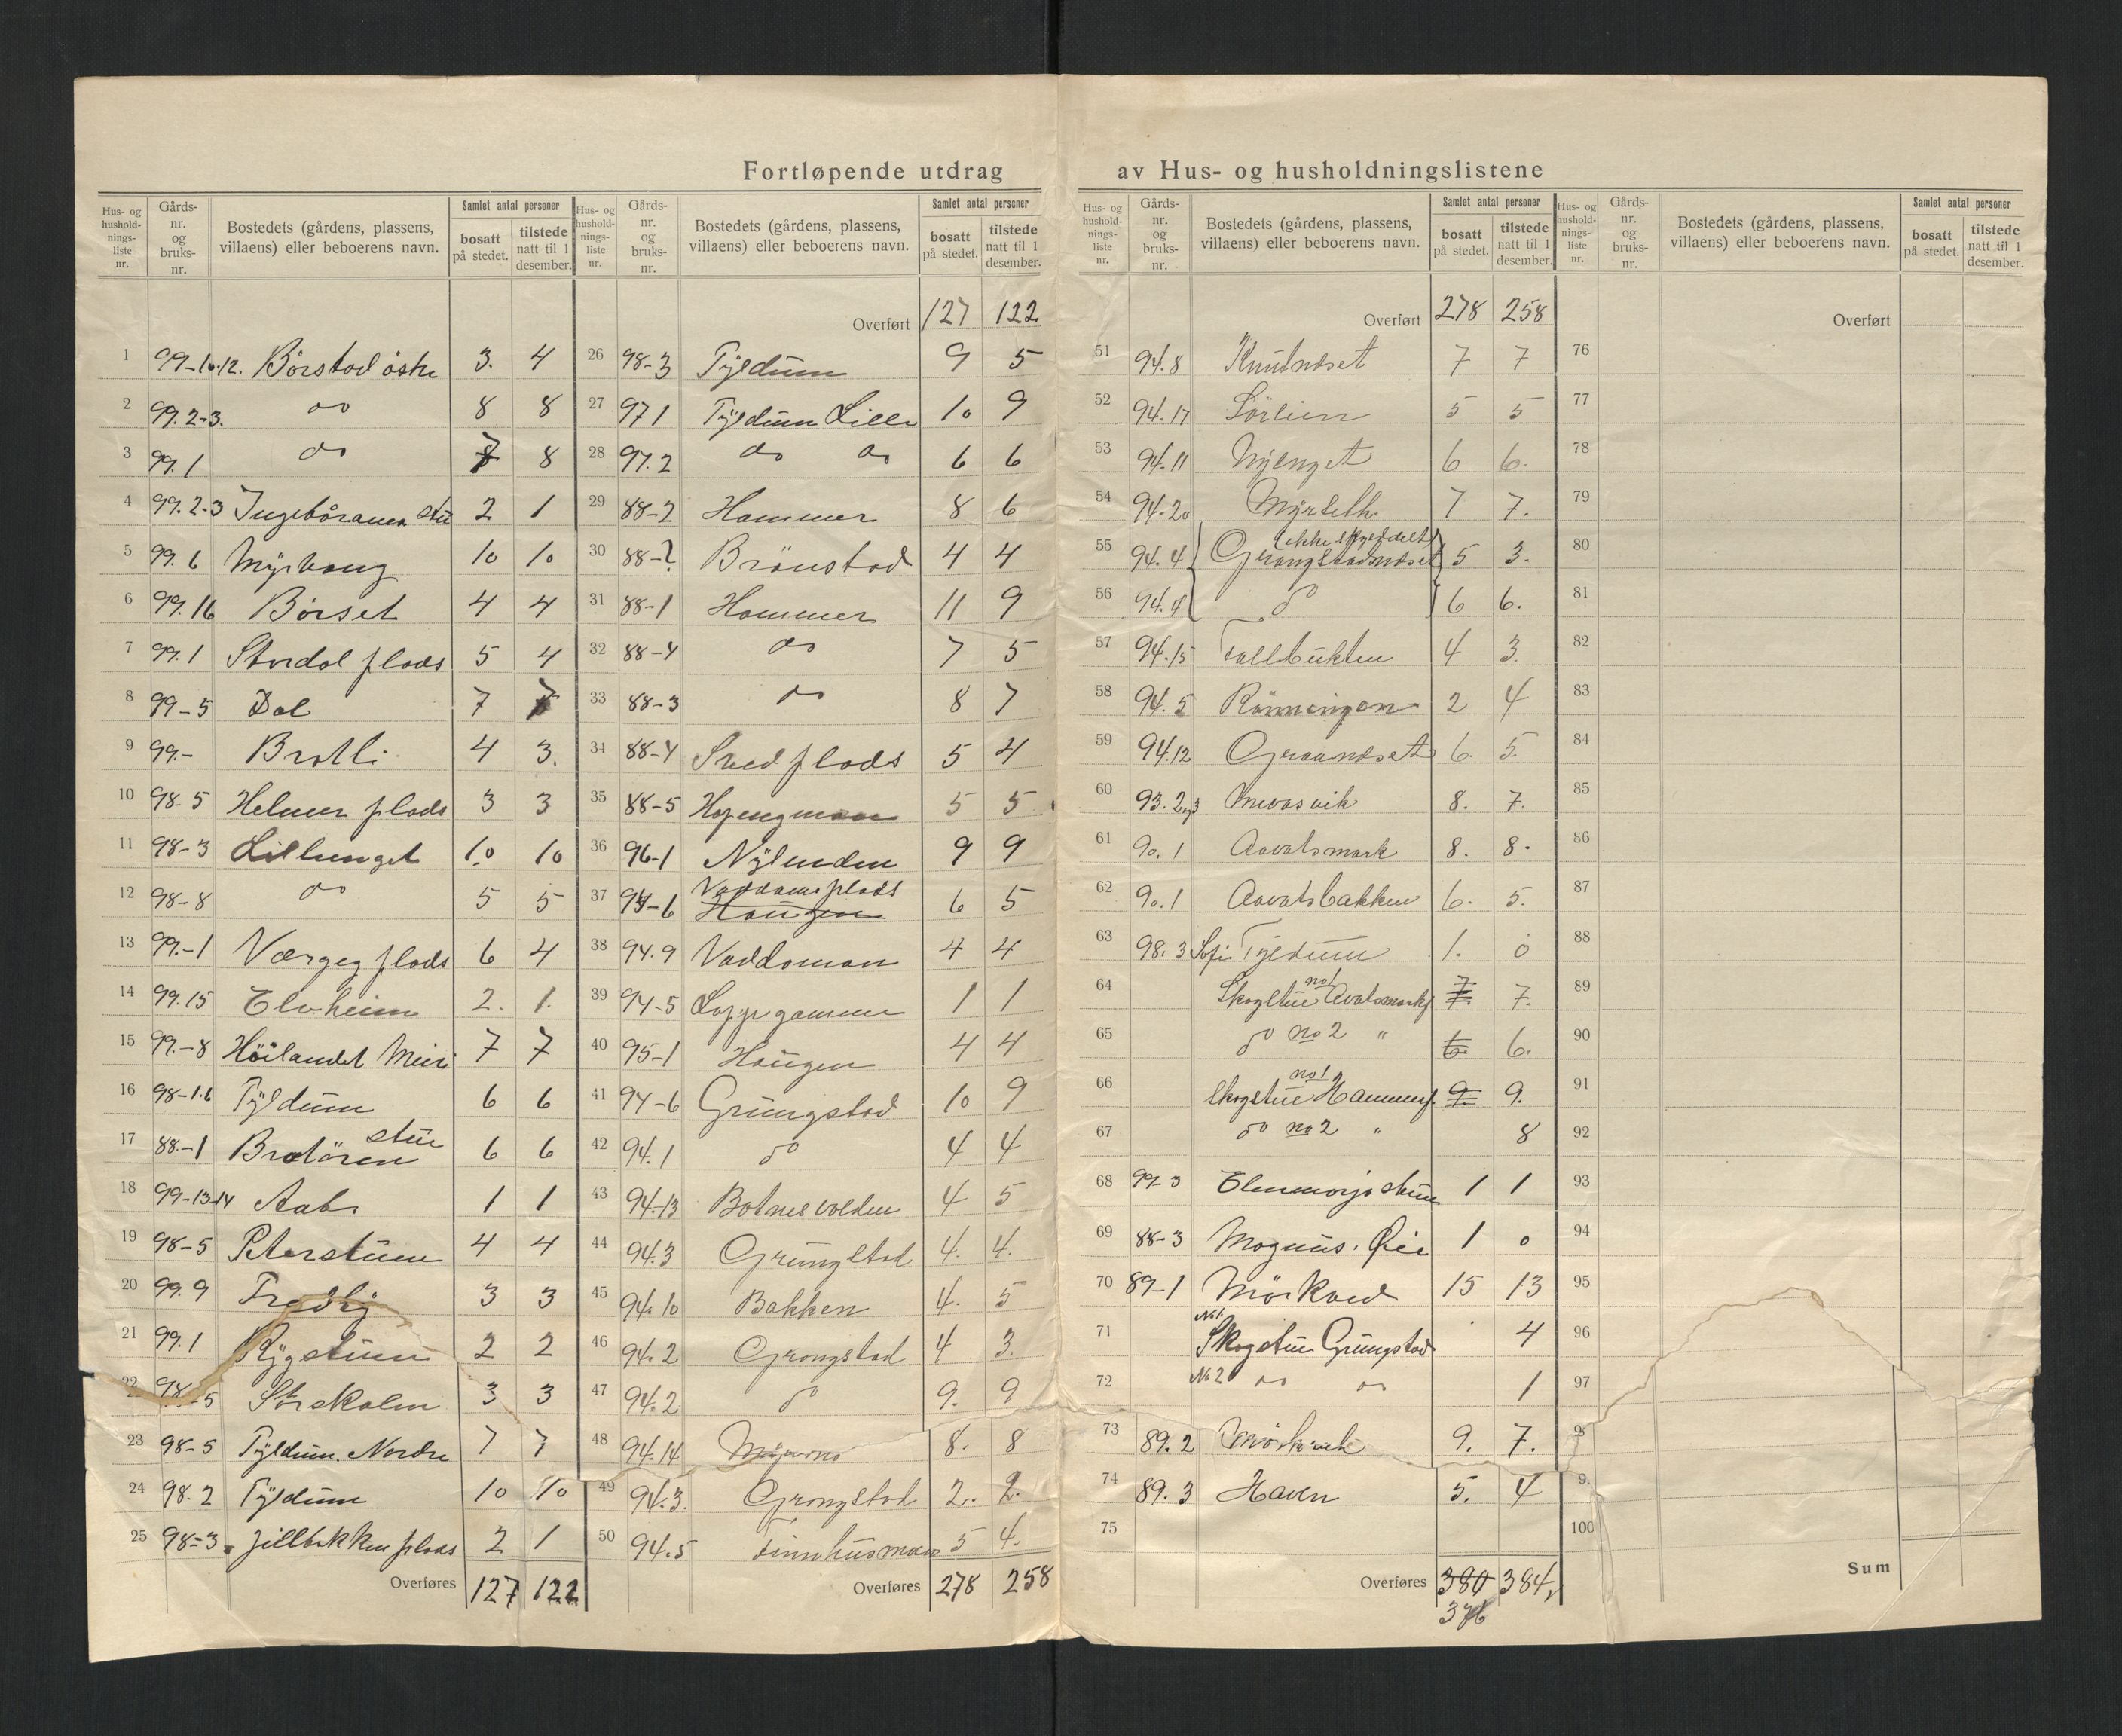 Fortløpende utdrag av Hus- og husholdningslistene
Hus- og hushold- nings- liste nr. | Gårds- nr. og bruks- nr. | Bostedets (gårdens, plassens, villaens) eller beboerens navn. | Samlet antal personer | bosatt på stedet. | tilstede natt til 1 desember.
1 99-10.12. Børstad østre 3. 4
2 99.2-3. do 8 8
3 99.1 do 7 8
4 99.2-3 2 1
5 99.6 Myrhaug 10 10
6 99.16 Børset 4 4
7 99.1 Stordal plads 5 4
8 99-5 Dal 7 7
9 99.- Bratli 4 3.
10 98.5 Helmer plads 3 3
11 98-3 Lillenget 10 10
12 98-8 do 5 5
13 99.-1 plads 6 4
14 99.15 Elvheim 2. 1.
15 99.-8 Høilandet 7 7
16 98-1.6 Tyldum 6 6
17 88.-1 Bratøren stue 6 6
18 99-13.14 1 1
19 98-5 Peterstuen 4 4
20 99.9 Fredly 3 3
21 99.1 Rygstuen 2 2
22 98-5 3 3
23 98-5 Tyldum. Nordre 7 7
24 98.2 Tyldum 10 10
25 98-3. plads 2 1
Overføres 127 122
Hus- og hushold- nings- liste nr. | Gårds- nr. og bruks- nr. | Bostedets (gårdens, plassens, villaens) eller beboerens navn. | Samlet antal personer | bosatt på stedet. | tilstede natt til 1 desember.
Overført 127 122
26 98-3 Tyldum 9 5
27 97.1 Tyldum Lille 10 9
28 97.2 do do 6 6
29 88-2 Hammer 8 6
30 88-? Brønstad 4 4
31 88-1 Hammer 11 9
32 88-4 do 7 5
33 88-3 do 8 7
34 88-4 plads 5 4
35 88-5 5 5
36 96-1 Nylenden 9 9
37 94-6 Vaddams plads Haugen 6 5
38 94.9 Vaddoman 4 4
39 94-5 1 1
40 95-1 Haugen 4 4
41 94-6 Grungstad 10 9
42 94.1 do 4 4
43 94-13 Botnesvolden 4 5
44 94.3 Grungstad 4. 4.
45 94.10 Bakken 4. 5
46 94.2 Grongstad 4 3.
47 94.2 do 9. 9
48 94.14 8. 8
49 94.3. Grongstad 2. 2.
50 94.5 Finnhusman 5 4.
Overføres 278 258
Hus- og hushold- nings- liste nr. | Gårds- nr. og bruks- nr. | Bostedets (gårdens, plassens, villaens) eller beboerens navn. | Samlet antal personer | bosatt på stedet. | tilstede natt til 1 desember.
Overført 278 258
51 94.8 Knutneset 7 7
52 94.17 Sørlien 5 5
53 94.11 Nyenget 6 6.
54 94.20 Myrseth 7 7.
55 94.4 Grongstadneset 5 3.
56 94.4 do 6 6.
57 94.15 Fallbukten 4 3.
58 94.5 Rønningen 2 4
59 94.12 6. 5.
60 93.2,3 8. 7.
61 90.1 Aavatsmark 8. 8.
62 90.1 Aavatsbakken 6. 5.
63 98.3 Sofi Tyldum 1. 0
64 Skogstue no 1 Avatsmark 7 7.
65 do no 2 " 6. 6.
66 Skogstue no 1 9. 9.
67 do no 2 " 8
68 99-3 1 1
69 88-3 Magnus. Øie 1 0
70 89-1 Mørkved 15 13
71 No 1 Skogstue Grungstad 4
72 No 2 do do 1
73 89.2 Mørkvik 9. 7.
74 89.3 Haven 5. 4
75
Overføres 380 384,
376
Hus- og hushold- nings- liste nr. | Gårds- nr. og bruks- nr. | Bostedets (gårdens, plassens, villaens) eller beboerens navn. | Samlet antal personer | bosatt på stedet. | tilstede natt til 1 desember.
Overført
76
77
78
79
80
81
82
83
84
85
86
87
88
89
90
91
92
93
94
95
96
97
9
9.
100
Sum